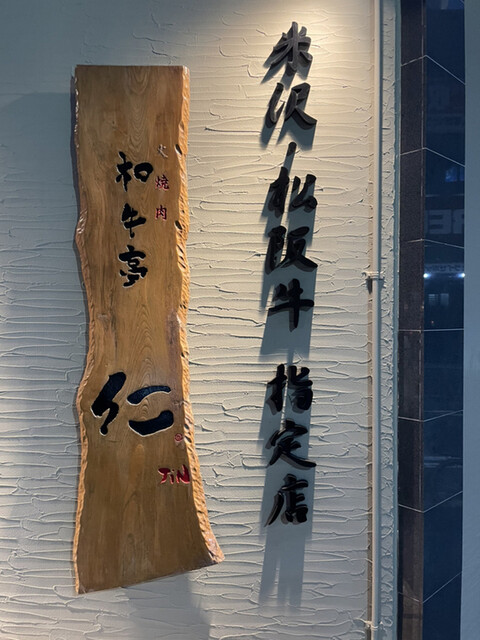 米沢・松阪牛 指定店
火焼肉
和牛亭 仁
JiN